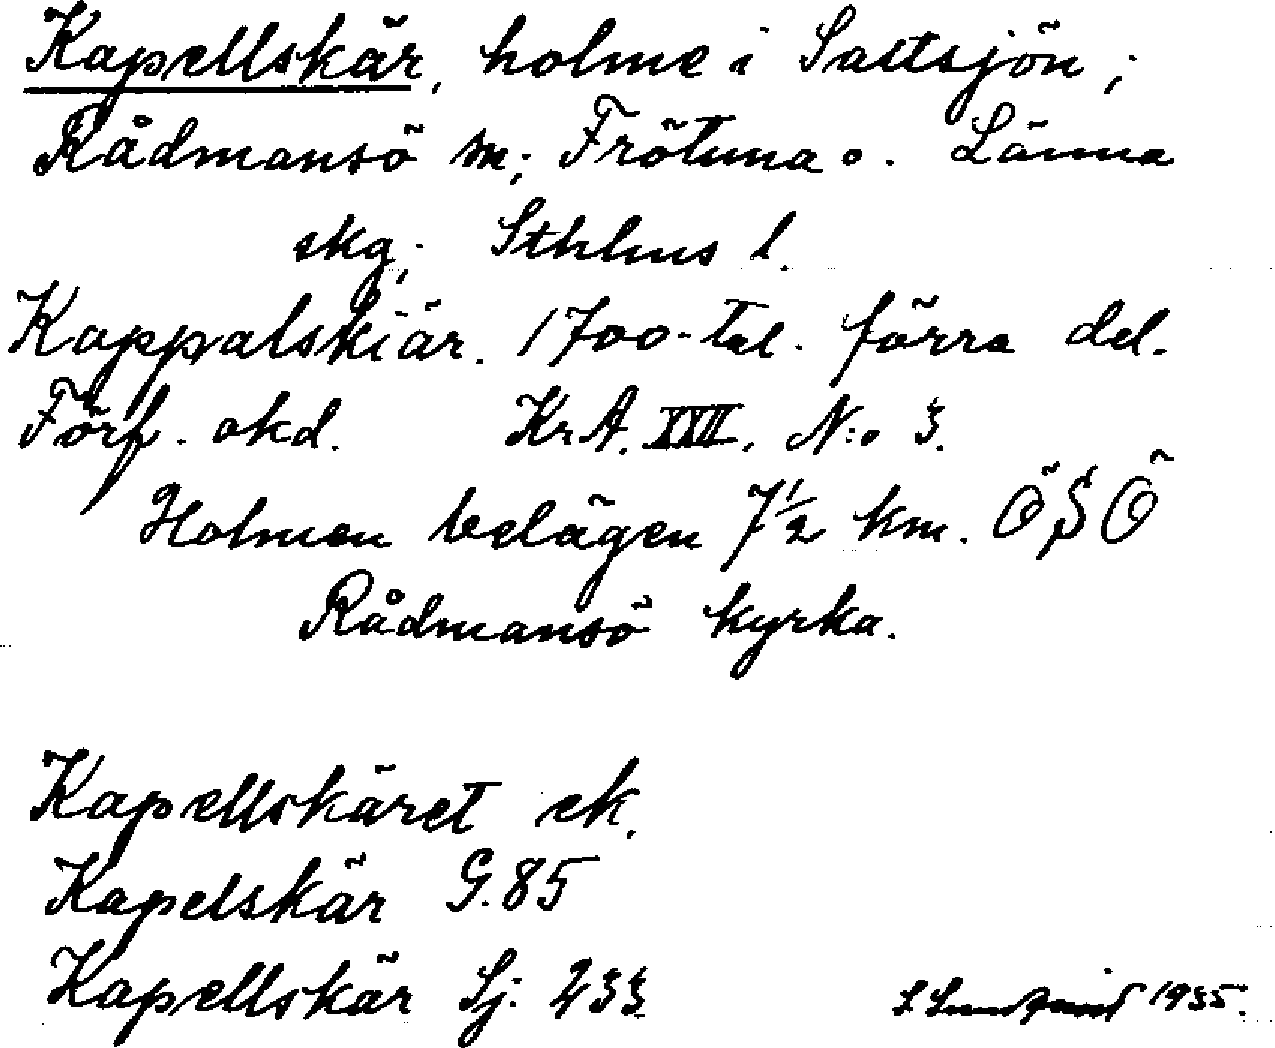 Kapellskär, holme i Saltsjön;
Rådmansö sn; Frötuna o. Länna
skg; Sthlms l.
Kappalskiär. 1700-tal. förra del.
Förf. okd. KrA. XVII. N:o 3.
Holmen belägen 7 1/2 km. ÖSÖ
Rådmansö kyrka.
Kapellskäret ek.
Kapelskär G. 85
Kapellskär Sj. 233
1935.